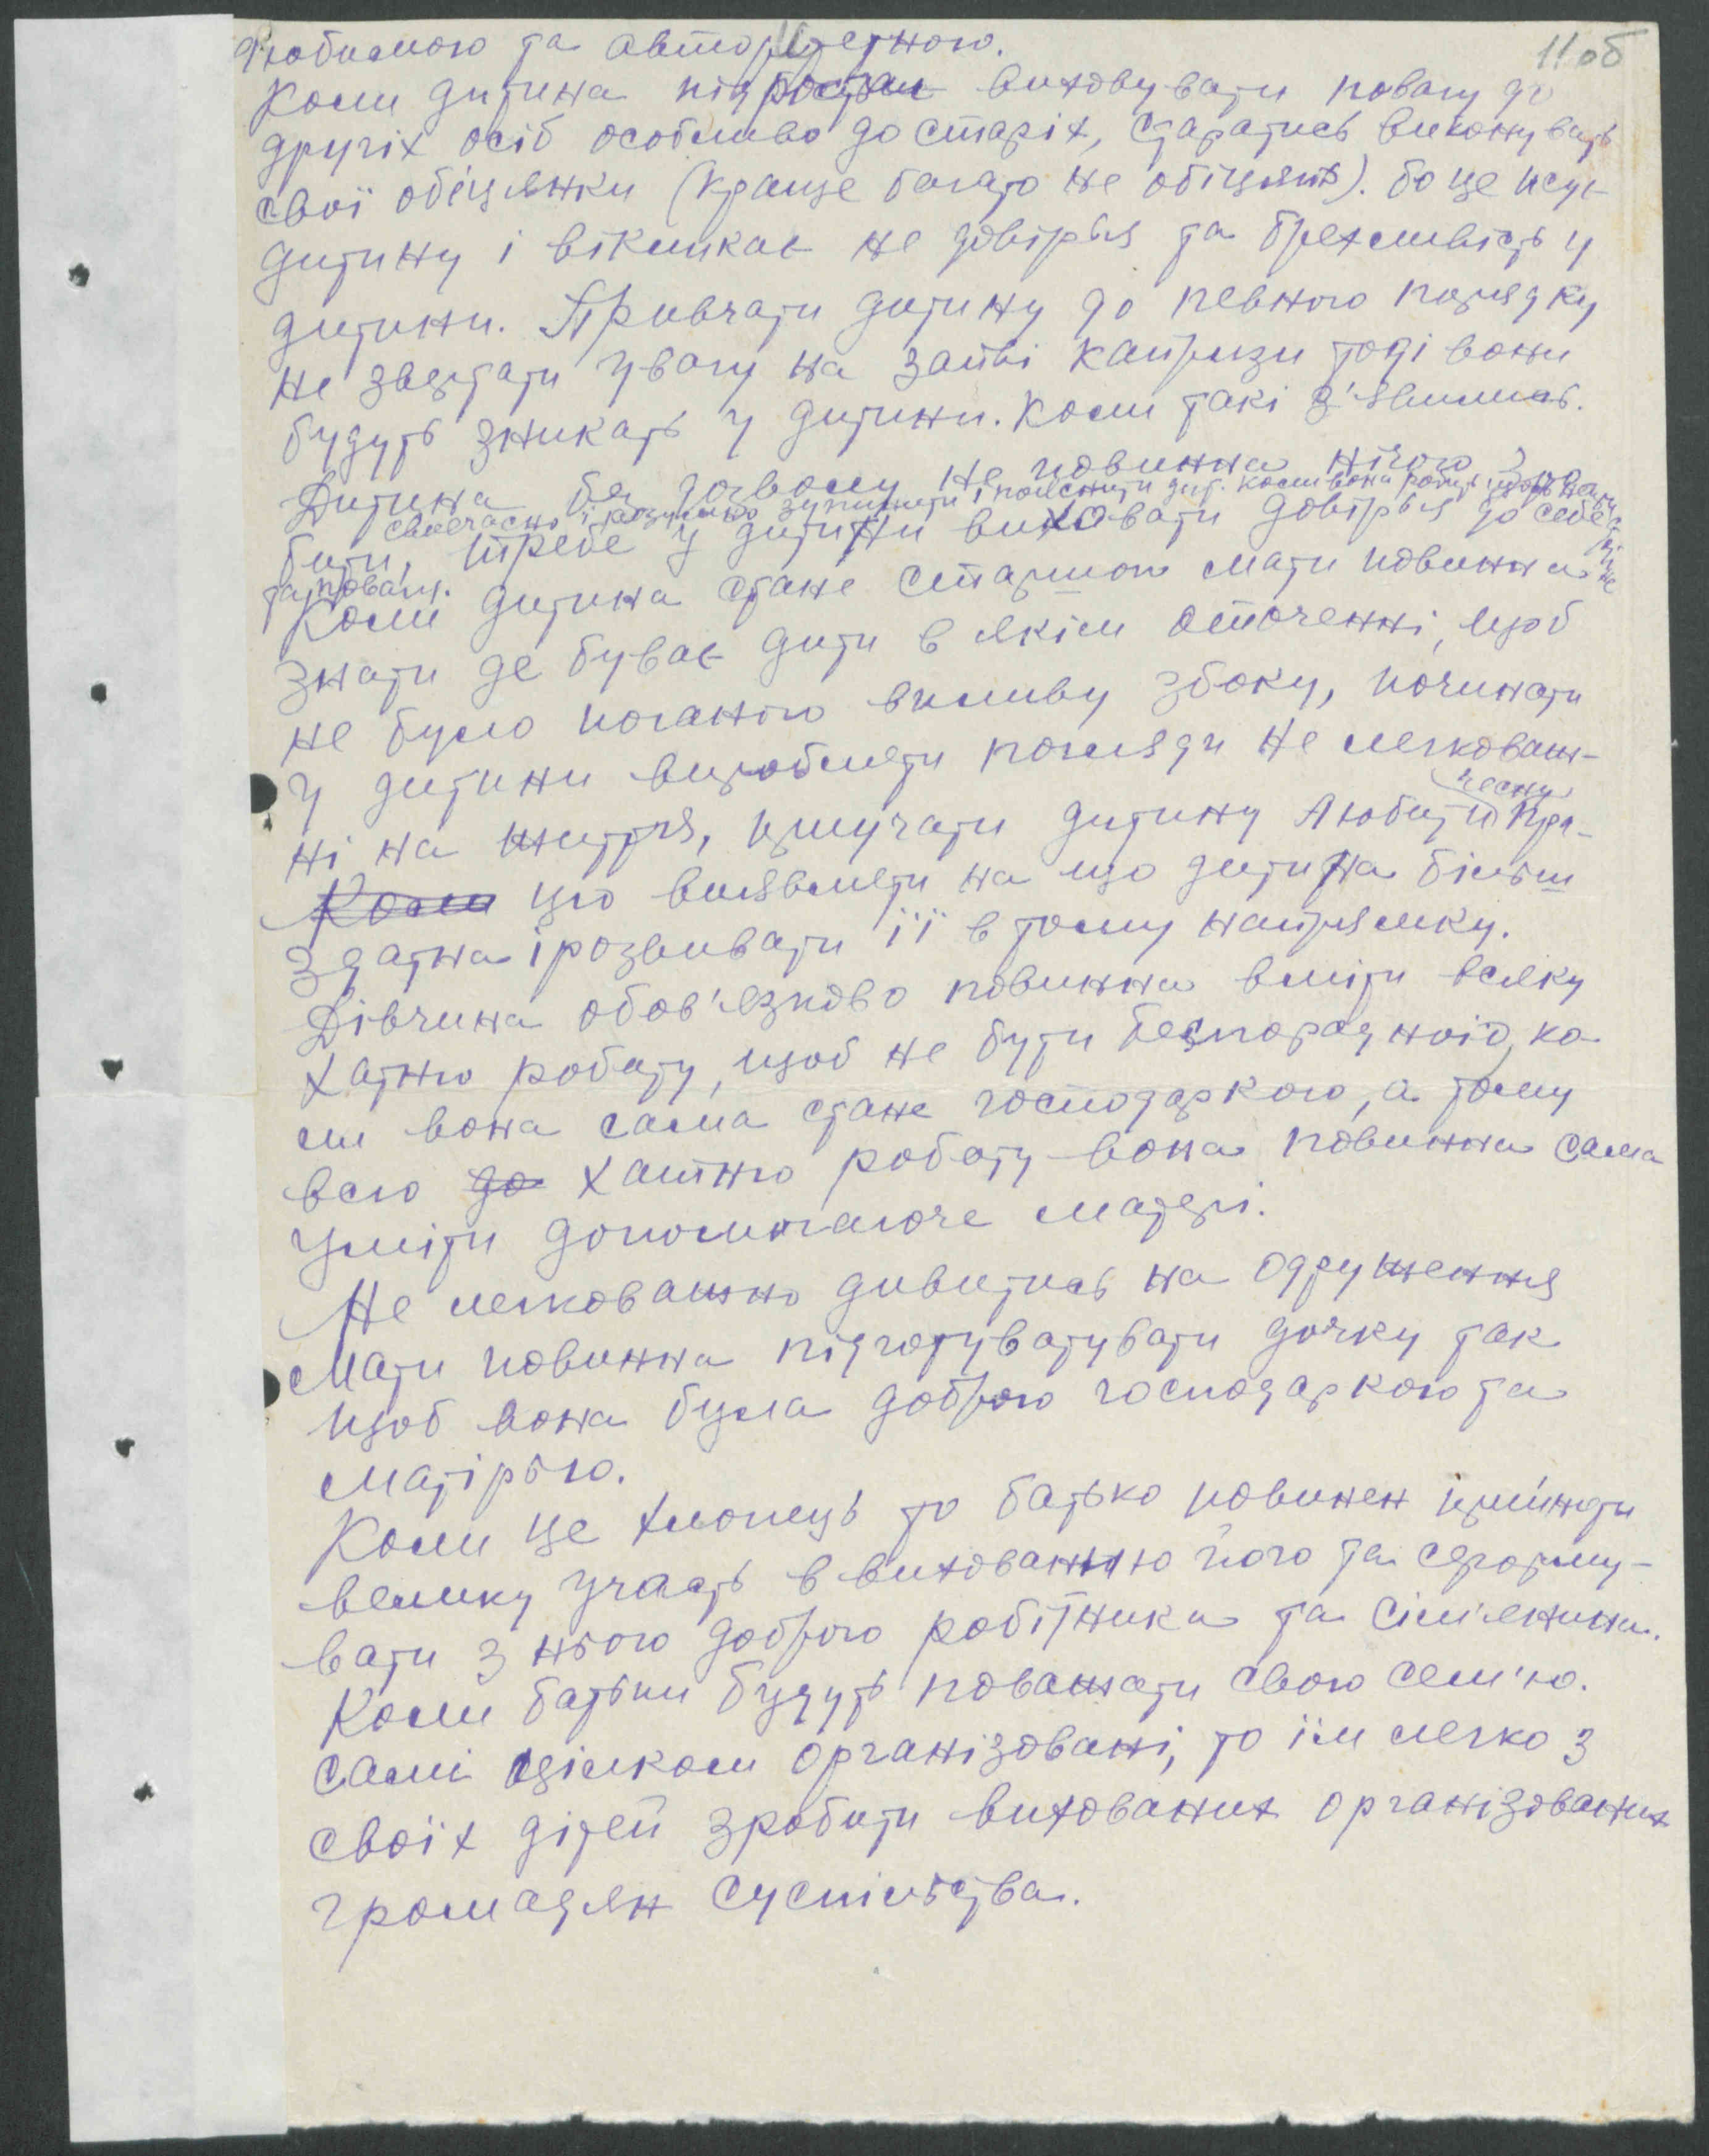 11об
Любимою та авторитетною.
Коли дитина підростає виховувати повагу до
другіх осіб особливо до старіх, старатись виконувать
свої обіцянки (краще багато не обіцять). бо це псує
дитину і вікликає не довірья та брехливість у
дитини. Привчати дитину до певного порядку
не звертати увагу на зайві капризи тоді вони
будуть зникать у дитини. Коли такі з'явились.
Дитина без дозволу не повинна нічого
своєчасно і розумно зупинити і пояснити дит. коли вона робить
бити, требе у дитини виховати довірья до себе
та повагу.
Коли дитина стане старшою мати повинна
знати де буває дити в якім оточенні, щоб
не було поганого впливу збоку, починати
у дитини виробляти погляди не легковаж-
чесну
ні на життя, привчати дитину любити пра-
Коли цю виявляти на що дитина більш
здатна і розвивати її в тому напрямку.
Дівчина обов'язково повинна вміти всяку
хатню роботу, щоб не бути безпорадною, ко
ли вона сама стане господаркою, а тому
всю до хатню роботу вона повинна сама
уміти допомогаюче матері.
Не легковажно дивитись на одруження
Мати повинна підготуватувати дочку так
щоб вона була доброю господаркою та
матірью.
Коли це хлопець то батько повинен прийняти
велику участь в вихованню його та сготу-
вати з нього доброго робітника та сім'янина.
Коли батьки будуть поважати свою сем'ю.
самі цілком організовані, то їм легко з
своїх дітей зробити вихованих організованих
громадян суспільства.